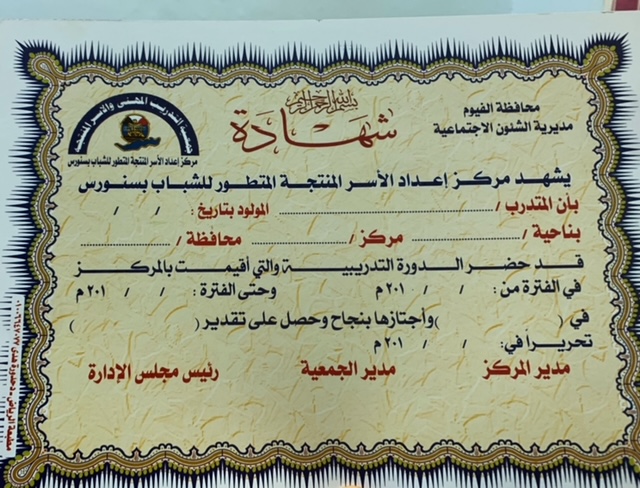 محافظة الفيوم
مديرية الشئون الاجتماعية
بسم الله الرحمن الرحيم
شهادة
جمعية التدريب المهنى والأسر المنتجة
مركز إعداد الأسر المنتجة المتطور للشباب بسنورس
يشهد مركز إعداد الأسر المنتجة المتطور للشباب بسنورس
بأن المتدرب / المولود بتاريخ : / /
بناحية / مركز / محافظة /
قد حضر الدورة التدريبية والتي أقيمت بالمركز
في الفترة من : / / ٢٠١ م وحتى الفترة : / / ٢٠١ م
في ( ) وأجتازها بنجاح وحصل على تقدير ( )
تحريراً في : / / ٢٠١ م
مدير المركز مدير الجمعية رئيس مجلس الإدارة